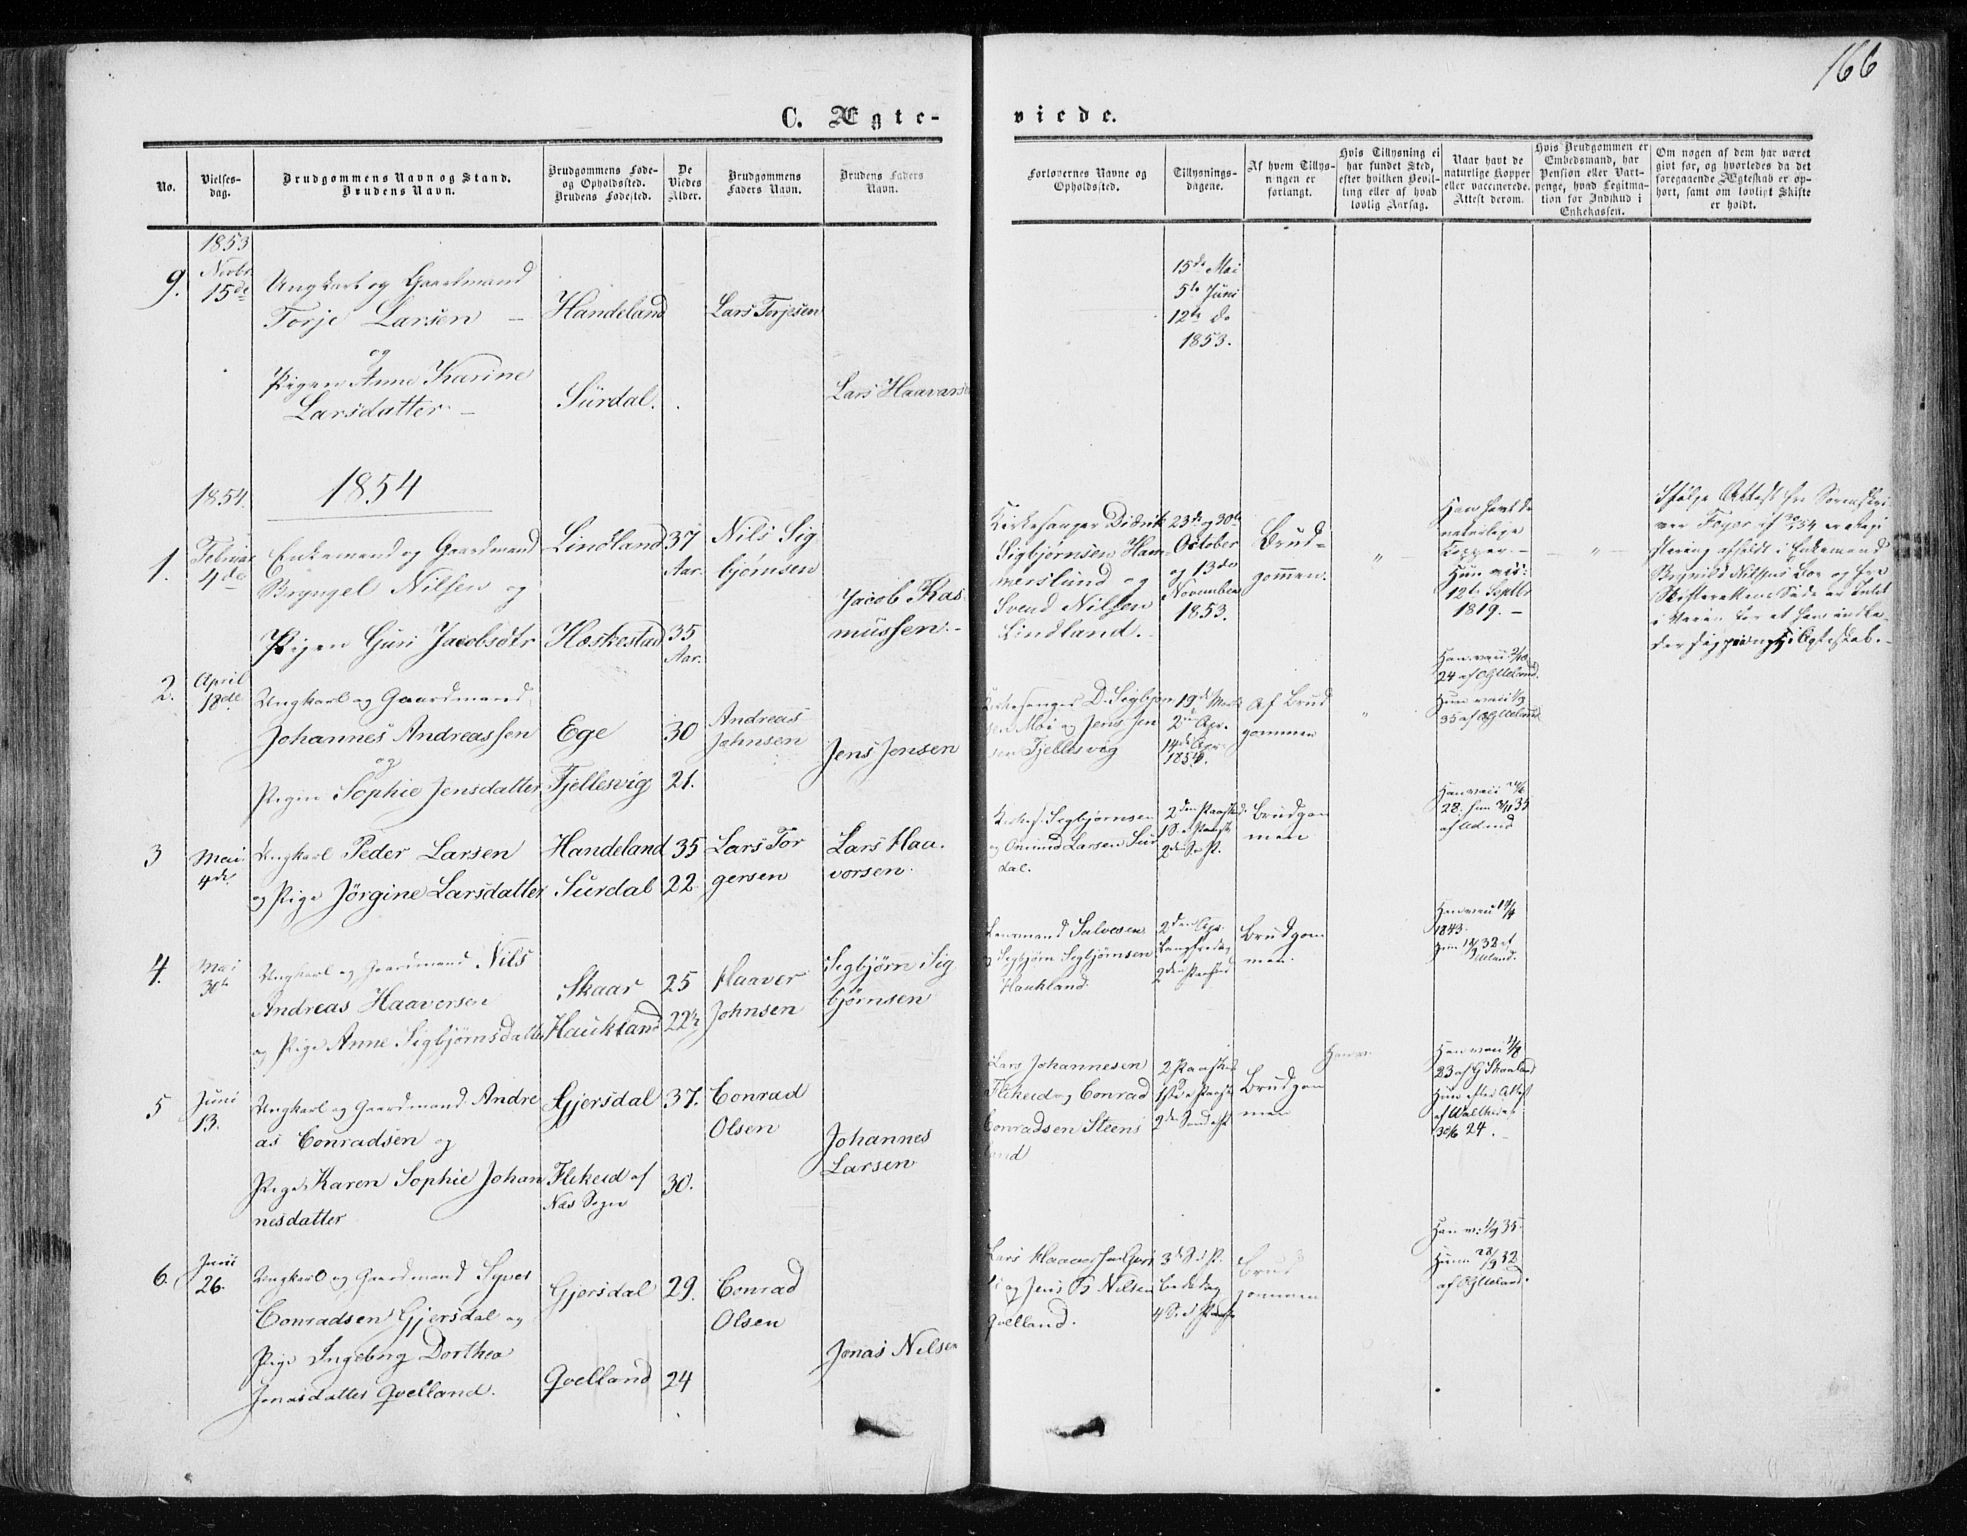 166
C. Ægte-
viede.
No.
Vielses-
dag.
Brudgommens Navn og Stand.
Brudens Navn.
Brudgommens Føde-
og Opholdssted.
Brudens Fødested.
De
Viedes
Alder.
Brudgommens
Faders Navn.
Brudens Faders
Navn.
Forlovernes Navne og
Opholdssted.
Tillysnings-
dagene.
Af hvem Tillys-
ningen er
forlangt.
Hvis Tillysning ei
har fundet Sted,
efter hvilken Bevil-
ling eller af hvad
lovlig Aarsag.
Naar havt de
naturlige Kopper
eller vaccinerede.
Attest derom.
Hvis Brudgommen er
Embedsmand, har
Pension eller Vart-
penge, hvad Legitma-
tion for Indskud i
Enkekassen.
Om nogen af dem har været
givt før, og hvorledes da det
foregaaende Ægteskab er op-
hørt, samt om lovligt Skifte
er holdt.
1853
9.
Novbr
15de
Ungkarl og Gaardmand
Torje Larsen –
Handeland
Lars Torjesen
15de Mai
5te Juni
12te do
1853.
og
Pigen Anne Karine
Larsdatter –
Sürdal.
Lars Haavorsen
1854.
1854
1.
Februar
4de
Enkemand og Gaardmand
Bryngel Nilsen og
Lindland
37
Aar.
Nils Sig
bjørnsen
Pigen Guri Jacobsdtr
Hæskestad
35
Aar.
Jacob Ras
mussen. –
Kirkesanger Didrik
Sigbjørnsen Ham
merslund og
Svend Nilsen
Lindland.
23de og 30te
October
og 13de
November
1853.
Brud=
gommen.
"
Han havt de
naturlige
Kopper. –
Hun vid:
12te Septbr
1819. –
– " –
Ifølge Attest fra Sorenskri
ver
i Enkemand
Nilsens Boe og fra
Skifterettens Side er Intet
i Veien for at han indla-
der sig i Ægteskab. –
2.
April
18de
Ungkarl og Gaardmand
Johannes Andreassen
og
Pigen Sophie Jensdatter
Ege
Fjellesvig
30
21.
Andreas
Johnsen
Jens Jensen
Kirkesanger D. Sigbjørn
sen Moi og Jens Jen
sen Fjellesvig
19de Marts
2den Apr.
14de Apr.
1854.
Af Brud
gommen
"
Han vacc.
24 af Ueland.
Hun vacc. 1/9
35 af Ueland
3
Mai
4de
Ungkarl Peder Larsen
og Pige Jörgine Larsdatter
Handeland
Surdal
35
22
Lars Tor
gersen
Lars Haa.
vorsen.
Kirkes. Sigbjørnsen
og Omund Larsen Sur
dal.
2den Paaskedag
1 S. e Paaske
2de S. e P.
Brudgom
men
Han vacc
28. hun 35
af Ueland
4.
Mai
30te
Ungkarl og Gaardmand Nils
Andreas Haaversen
og Pige Anne Sigbjörnsdatter
Skaar
Haukland
25
22½
Haaver
Johnsen
Sigbjörn Sig
björnsen
Lensmand Salvesen
og Sigbjörn Sigbjörnsen
Haukland.
2den Apr.
Langfredag
2den Paaskedag
Brudgom
men.
Han vacc
1843.
hun 32 af
Ueland.
5
Juni
13.
Ungkarl og Gaardmand Andre
as Conradsen og
Pige Karen Sophie Johan
nesdatter
Gjersdal
Flikeid af
Næs Sogn
37.
30.
Conrad
Olsen
Johannes
Larsen
Lars Johannesen
Flikeid og Conrad
Conradsen Steens
land
2 Paaskedag
1 S. e Paaske
2den Søndag
Brudgom
men
Han v.
Han vacc
23 af Skaaland
Hun efter Attest
af
30/6 24.
6.
Juni
26.
Ungkarl og Gaardmand Syver
Conradsen Gjersdal og
Pige Ingeborg Dorthea
Jonasdatter Qvelland.
Gjersdal
Qvelland
29.
24
Conrad
Olsen
Jonas Nilsen
Lars Haaversen Gjers
dal og Jens B Nilsen
Qvelland.
3 S. e P.
Bededag
4 S. e Paaske
Brud
gommen
Han v: 1/9 35.
Hun 28/9 32
af Ueland.